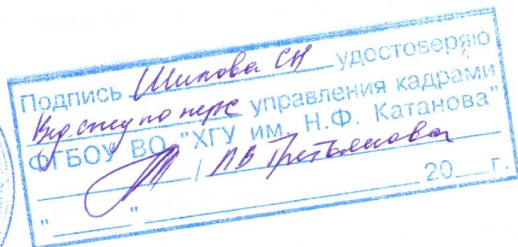 Подпись Шипова СН удостоверяю
Вед спец по перс управления кадрами
ФГБОУ ВО "ХГУ им. Н.Ф. Катанова"
/ ЛВ Третьякова
"     " 20 г.